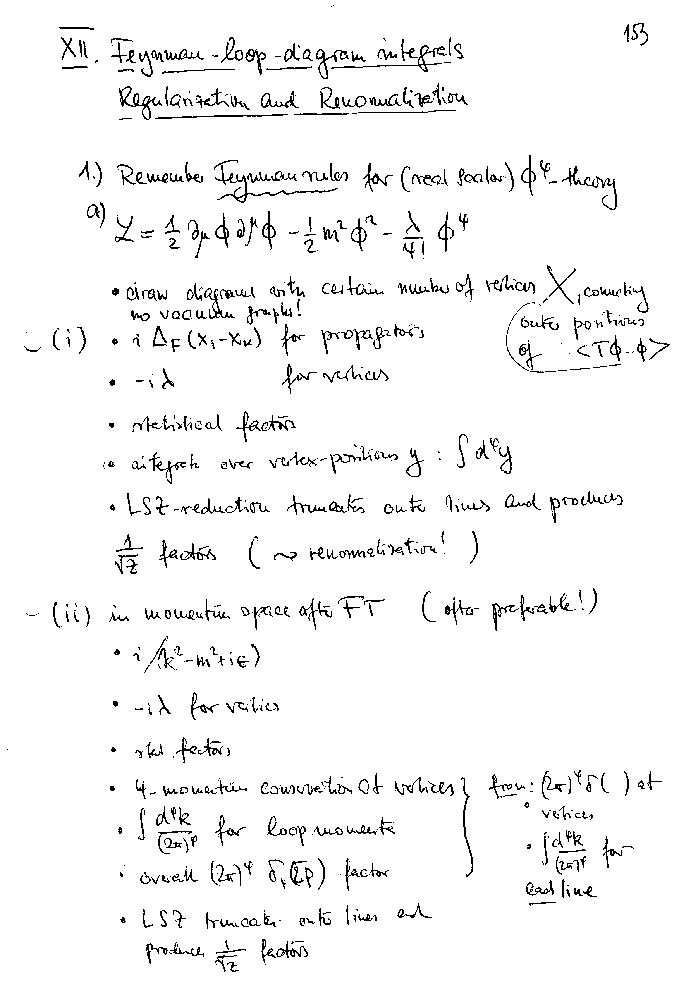 153
XII. Feynman-loop-diagram integrals
Regularization and Renormalization
1.) Remember Feynman rules for (real scalar) ϕ⁴-theory
a) ℒ = 1/2 ∂μ ϕ ∂^μ ϕ - 1/2 m² ϕ² - λ/4! ϕ⁴
• draw diagrams with certain number of vertices X, connecting
no vacuum graphs!
outer positions
of <Tϕ..ϕ>
(i) • i Δ_F (x_i - x_k) for propagators
• -iλ for vertices
• statistical factors
• integrate over vertex-positions y : ∫ d⁴y
• LSZ-reduction truncates outer lines and produces
1/√Z factors ( ~> renormalization! )
- (ii) in momentum space after FT (often preferable!)
• i/(k²-m²+iϵ)
• -iλ for vertices
• stat. factors
• 4-momentum conservation at vertices
• ∫ d⁴k/(2π)⁴ for loop momenta
• overall (2π)⁴ δ(Σp) factor
from: (2π)⁴ δ( ) at
vertices
• ∫ d⁴k/(2π)⁴ for
each line
• LSZ truncates outer lines and
produces 1/√Z factors